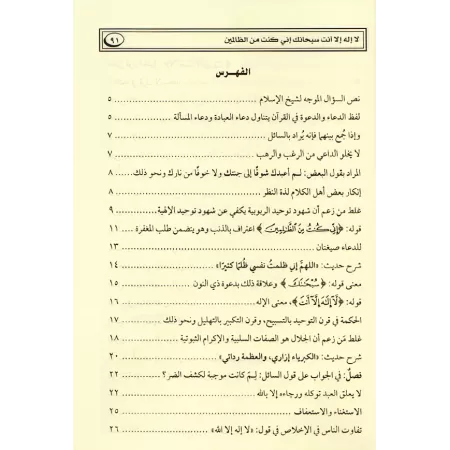 لا إله إلا أنت سبحانك إني كنت من الظالمين
٩١
الفهرس
نص السؤال الموجه لشيخ الإسلام ........ ٥
لفظ الدعاء والدعوة في القرآن يتناول دعاء العبادة ودعاء المسألة ........ ٥
وإذا جُمع بينهما فإنه يُراد بالسائل ........ ٧
لا يخلو الداعي من الرغب والرهب ........ ٧
المراد بقول البعض: لم أعبدك شوقًا إلى جنتك ولا خوفًا من نارك ونحو ذلك ..... ٨
إنكار بعض أهل الكلام لذة النظر ........ ٨
غلط من زعم أن شهود توحيد الربوبية يكفي عن شهود توحيد الإلهية ........ ٩
قوله: ﴿إِنِّي كُنتُ مِنَ الظَّالِمِينَ﴾ اعتراف بالذنب وهو يتضمن طلب المغفرة ..... ١١
للدعاء صيغتان ........ ١٣
شرح حديث: «اللهم إني ظلمتُ نفسي ظُلمًا كثيرًا» ........ ١٤
معنى قوله: ﴿سُبْحَانَكَ﴾ وعلاقة ذلك بدعوة ذي النون ........ ١٥
قوله: ﴿لَا إِلَهَ إِلَّا أَنتَ﴾، معنى الإله ........ ١٦
الحكمة في قرن التوحيد بالتسبيح، وقرن التكبير بالتهليل ونحو ذلك ........ ١٧
غلط مَن زعم أن الجلال هو الصفات السلبية والإكرام الثبوتية ........ ١٨
شرح حديث: «الكبرياء إزاري، والعظمة ردائي» ........ ٢٠
فصل: في الجواب على قول السائل: لِمَ كانت موجبة لكشف الضر؟ ........ ٢٢
لا يعلق العبد توكله ورجاءه إلا بالله ........ ٢٢
الاستغناء والاستعفاف ........ ٢٥
تفاوت الناس في الإخلاص في قول: «لا إله إلا الله» ........ ٢٦